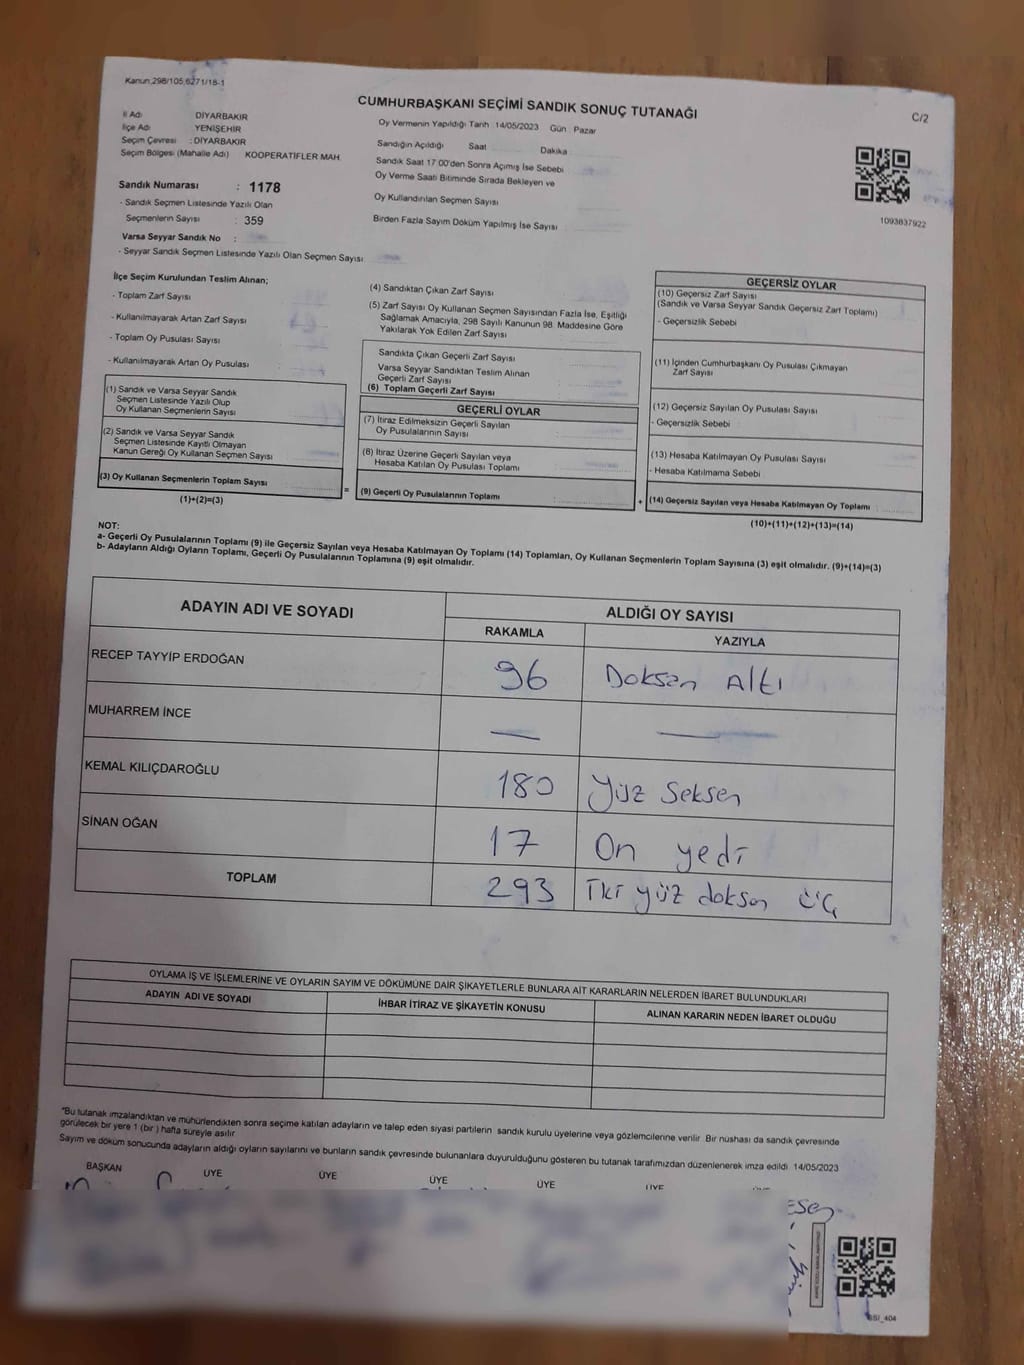 Kanun:298/105,6271/18-1
CUMHURBAŞKANI SEÇİMİ SANDIK SONUÇ TUTANAĞI
C/2
İl Adı DİYARBAKIR
İlçe Adı YENİŞEHİR
Seçim Çevresi : DİYARBAKIR
Seçim Bölgesi (Mahalle Adı) KOOPERATİFLER MAH.
Sandık Numarası : 1178
- Sandık Seçmen Listesinde Yazılı Olan
Seçmenlerin Sayısı : 359
Varsa Seyyar Sandık No :
- Seyyar Sandık Seçmen Listesinde Yazılı Olan Seçmen Sayısı
Oy Vermenin Yapıldığı Tarih 14/05/2023 Gün : Pazar
Sandığın Açıldığı Saat Dakika
Sandık Saat 17:00'den Sonra Açılmış İse Sebebi
Oy Verme Saati Bitiminde Sırada Bekleyen ve
Oy Kullandırılan Seçmen Sayısı
Birden Fazla Sayım Döküm Yapılmış İse Sayısı
1093837922
İlçe Seçim Kurulundan Teslim Alınan;
- Toplam Zarf Sayısı
- Kullanılmayarak Artan Zarf Sayısı
- Toplam Oy Pusulası Sayısı
- Kullanılmayarak Artan Oy Pusulası
(1) Sandık ve Varsa Seyyar Sandık
Seçmen Listesinde Yazılı Olup
Oy Kullanan Seçmenlerin Sayısı
(2) Sandık ve Varsa Seyyar Sandık
Seçmen Listesinde Kayıtlı Olmayan
Kanun Gereği Oy Kullanan Seçmen Sayısı
(3) Oy Kullanan Seçmenlerin Toplam Sayısı
(1)+(2)=(3)
(4) Sandıktan Çıkan Zarf Sayısı
(5) Zarf Sayısı Oy Kullanan Seçmen Sayısından Fazla İse, Eşitliği
Sağlamak Amacıyla, 298 Sayılı Kanunun 98. Maddesine Göre
Yakılarak Yok Edilen Zarf Sayısı
Sandıkta Çıkan Geçerli Zarf Sayısı
Varsa Seyyar Sandıktan Teslim Alınan
Geçerli Zarf Sayısı
(6) Toplam Geçerli Zarf Sayısı
GEÇERLİ OYLAR
(7) İtiraz Edilmeksizin Geçerli Sayılan
Oy Pusulalarının Sayısı
(8) İtiraz Üzerine Geçerli Sayılan veya
Hesaba Katılan Oy Pusulası Toplamı
= (9) Geçerli Oy Pusulalarının Toplamı
GEÇERSİZ OYLAR
(10) Geçersiz Zarf Sayısı
(Sandık ve Varsa Seyyar Sandık Geçersiz Zarf Toplamı)
- Geçersizlik Sebebi
(11) İçinden Cumhurbaşkanı Oy Pusulası Çıkmayan
Zarf Sayısı
(12) Geçersiz Sayılan Oy Pusulası Sayısı
- Geçersizlik Sebebi
(13) Hesaba Katılmayan Oy Pusulası Sayısı
- Hesaba Katılmama Sebebi
+ (14) Geçersiz Sayılan veya Hesaba Katılmayan Oy Toplamı
(10)+(11)+(12)+(13)=(14)
NOT:
a- Geçerli Oy Pusulalarının Toplamı (9) ile Geçersiz Sayılan veya Hesaba Katılmayan Oy Toplamı (14) Toplamları, Oy Kullanan Seçmenlerin Toplam Sayısına (3) eşit olmalıdır. (9)+(14)=(3)
b- Adayların Aldığı Oyların Toplamı, Geçerli Oy Pusulalarının Toplamına (9) eşit olmalıdır.
ADAYIN ADI VE SOYADI
ALDIĞI OY SAYISI
RAKAMLA YAZIYLA
RECEP TAYYİP ERDOĞAN 96 Doksan Altı
MUHARREM İNCE — —
KEMAL KILIÇDAROĞLU 180 Yüz Seksen
SİNAN OĞAN 17 On yedi
TOPLAM 293 İki yüz doksan üç
OYLAMA İŞ VE İŞLEMLERİNE VE OYLARIN SAYIM VE DÖKÜMÜNE DAİR ŞİKAYETLERLE BUNLARA AİT KARARLARIN NELERDEN İBARET BULUNDUKLARI
ADAYIN ADI VE SOYADI İHBAR İTİRAZ VE ŞİKAYETİN KONUSU ALINAN KARARIN NEDEN İBARET OLDUĞU
*Bu tutanak imzalandıktan ve mühürlendikten sonra seçime katılan adayların ve talep eden siyasi partilerin sandık kurulu üyelerine veya gözlemcilerine verilir. Bir nüshası da sandık çevresinde
görülecek bir yere 1 (bir) hafta süreyle asılır
Sayım ve döküm sonucunda adayların aldığı oyların sayılarını ve bunların sandık çevresinde bulunanlara duyurulduğunu gösteren bu tutanak tarafımızdan düzenlenerek imza edildi. 14/05/2023
BAŞKAN ÜYE ÜYE ÜYE ÜYE ÜYE